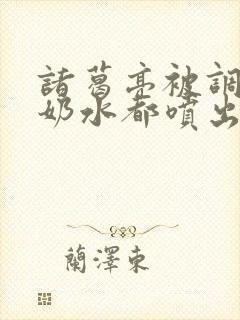 諸葛亮被調
奶水都噴出
蘭澤東